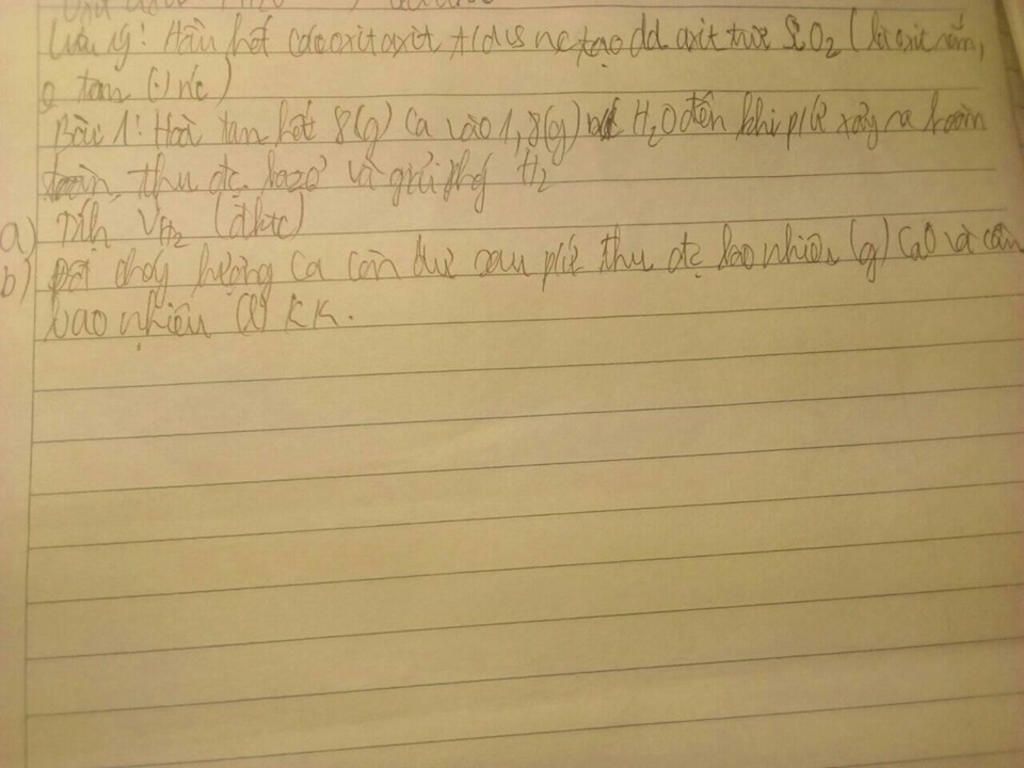 Lưu ý: Hầu hết các oxit axit t/d vs nc tạo dd axit trừ SiO2 (là oxit rắn,
o tan (.) nc)
Bài 1: Hoà tan hết 8(g) Ca vào 1,8(g) H2O đến khi pứ xảy ra hoàn
toàn, thu đc bazơ và giải phóng H2
a) Tính VH2 (đktc)
b) Đốt cháy lượng Ca còn dư sau pứ thu đc bao nhiêu (g) CaO và cần
bao nhiêu (l) KK.